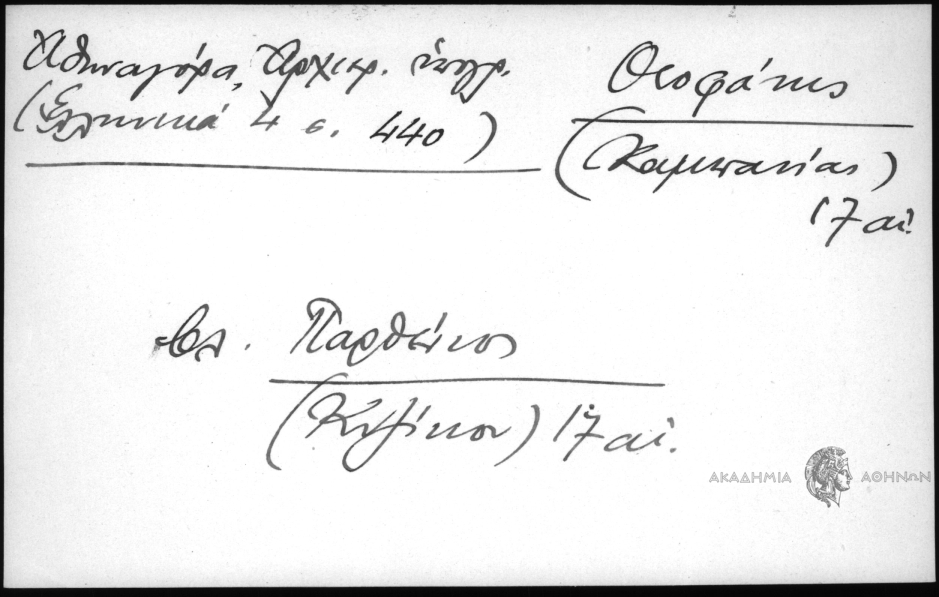 Ἀθηναγόρα, Ἀρχιερ. ὑπογρ.
(Ἑλληνικά 4 σ. 440)
Θεοφάνης
(Καμπανίας)
17 αἰ.
βλ. Παρθένιος
(Κυζίκου) 17 αἰ.
ΑΚΑΔΗΜΙΑ ΑΘΗΝΩΝ